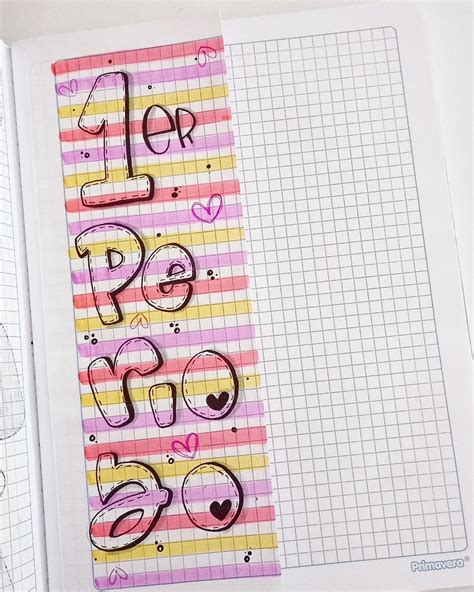 1ER
Pe
rio
do
Primavera®